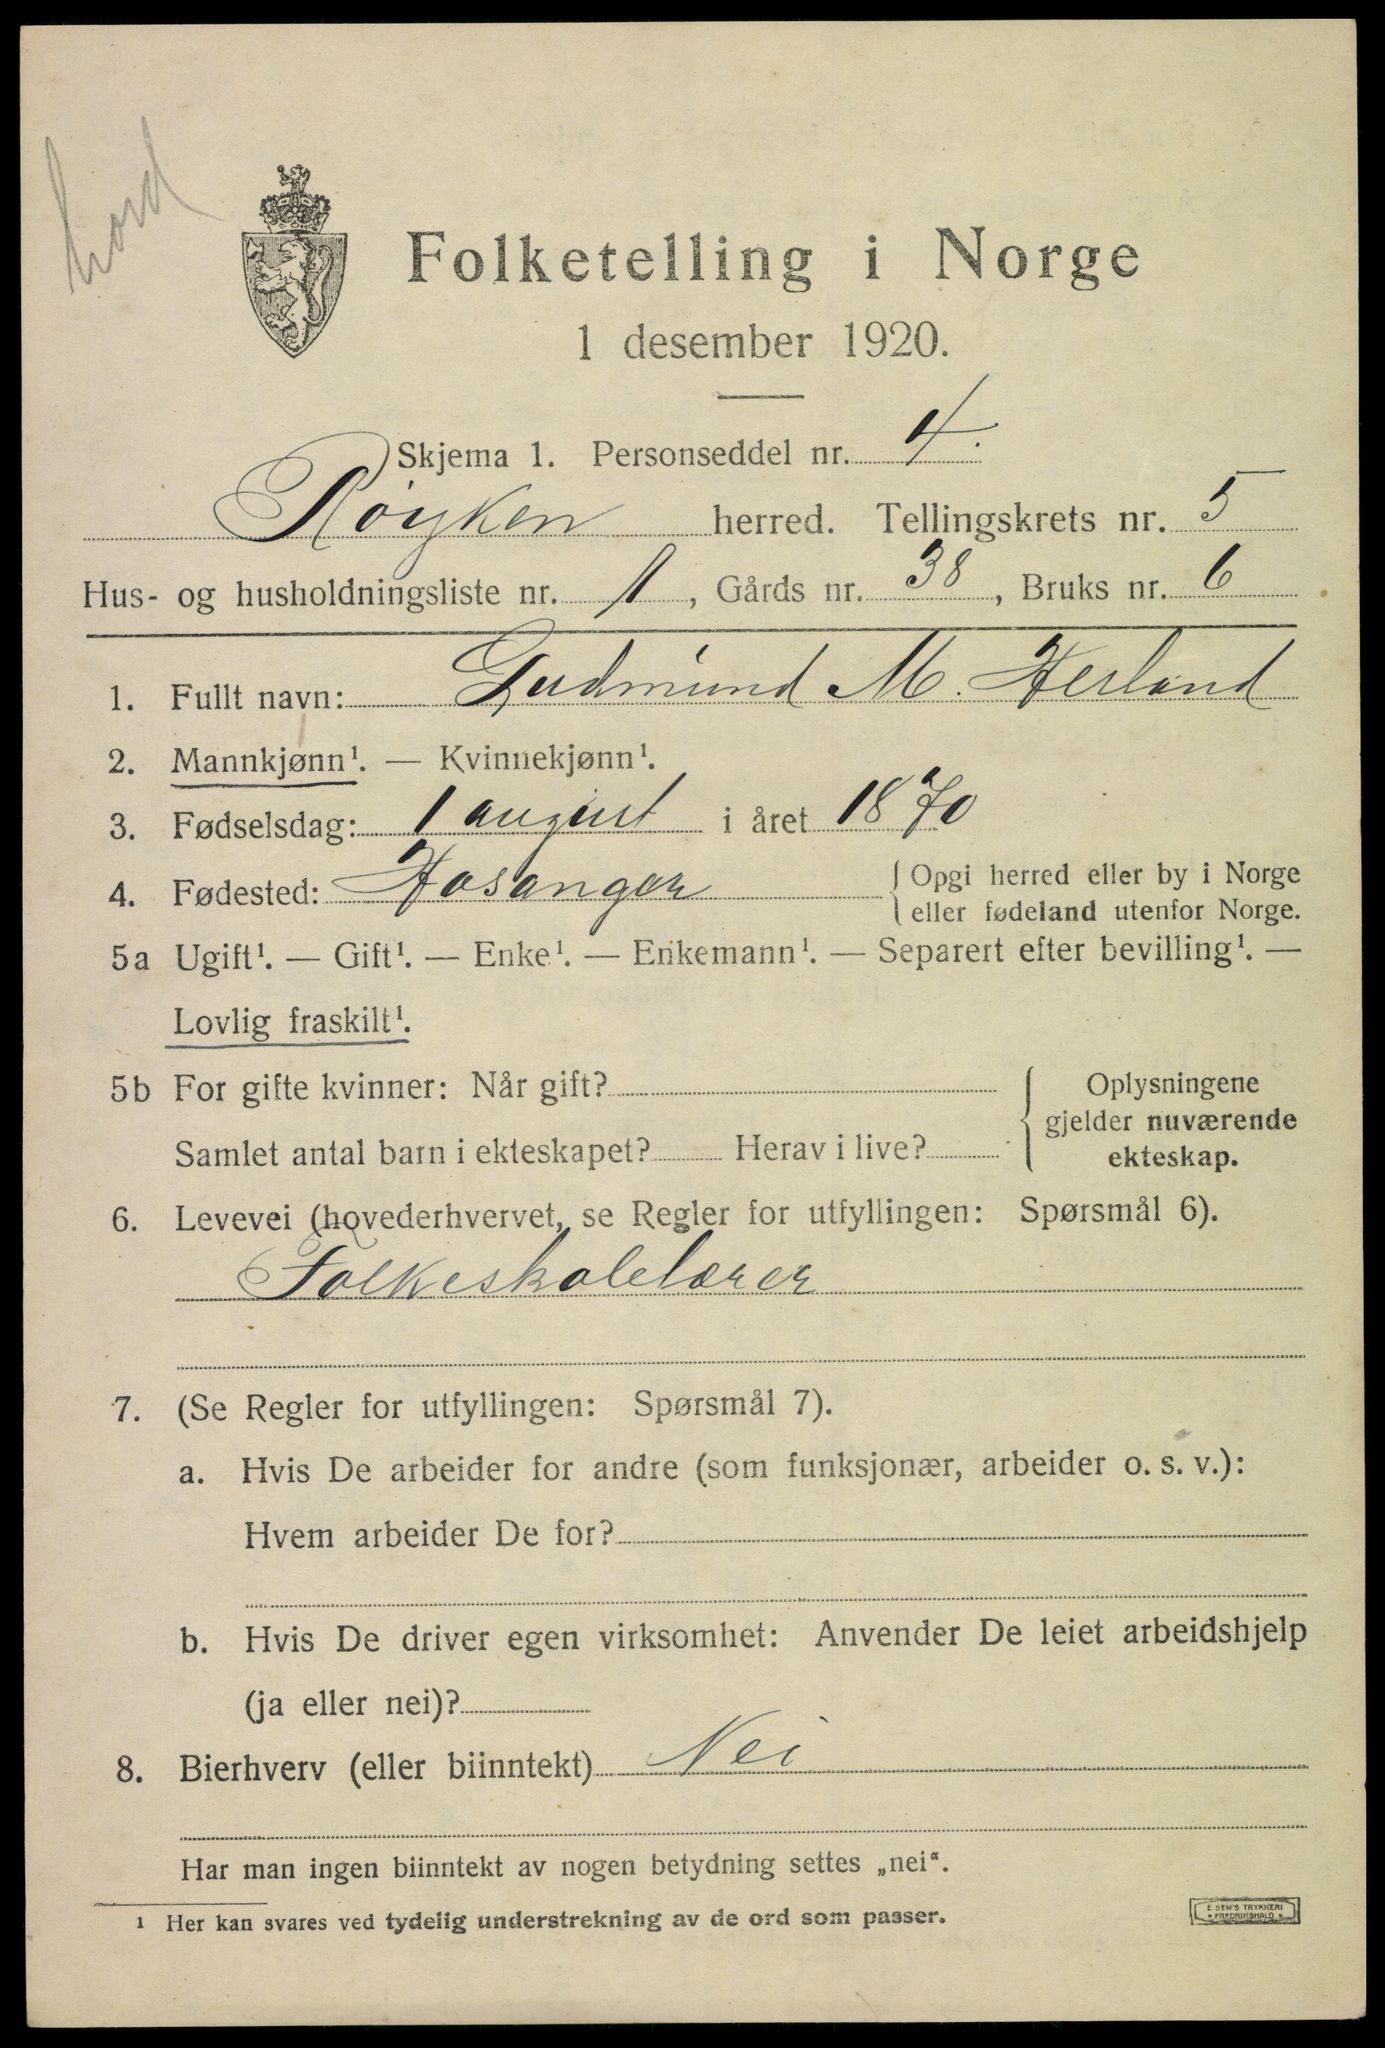 hord
Folketelling i Norge
1 desember 1920.
Skjema 1. Personseddel nr. 4.
Røyken herred. Tellingskrets nr. 5
Hus- og husholdningsliste nr. 1, Gårds nr. 38, Bruks nr. 6
1. Fullt navn: Gudmund M. Herland
2. Mannkjønn¹. — Kvinnekjønn¹.
3. Fødselsdag: 1 august i året 1870
4. Fødested: Hosanger { Opgi herred eller by i Norge
eller fødeland utenfor Norge.
5a Ugift¹. — Gift¹. — Enke¹. — Enkemann¹. — Separert efter bevilling¹. —
Lovlig fraskilt¹.
5b For gifte kvinner: Når gift? { Oplysningene
gjelder nuværende
Samlet antal barn i ekteskapet? Herav i live? ekteskap.
6. Levevei (hovederhvervet, se Regler for utfyllingen: Spørsmål 6).
Folkeskolelærer
7. (Se Regler for utfyllingen: Spørsmål 7).
a. Hvis De arbeider for andre (som funksjonær, arbeider o. s. v.):
Hvem arbeider De for?
b. Hvis De driver egen virksomhet: Anvender De leiet arbeidshjelp
(ja eller nei)?
8. Bierhverv (eller biinntekt) Nei
Har man ingen biinntekt av nogen betydning settes „nei“.
¹ Her kan svares ved tydelig understrekning av de ord som passer.
E. SEM'S TRYKKERI
FREDRIKSHALD